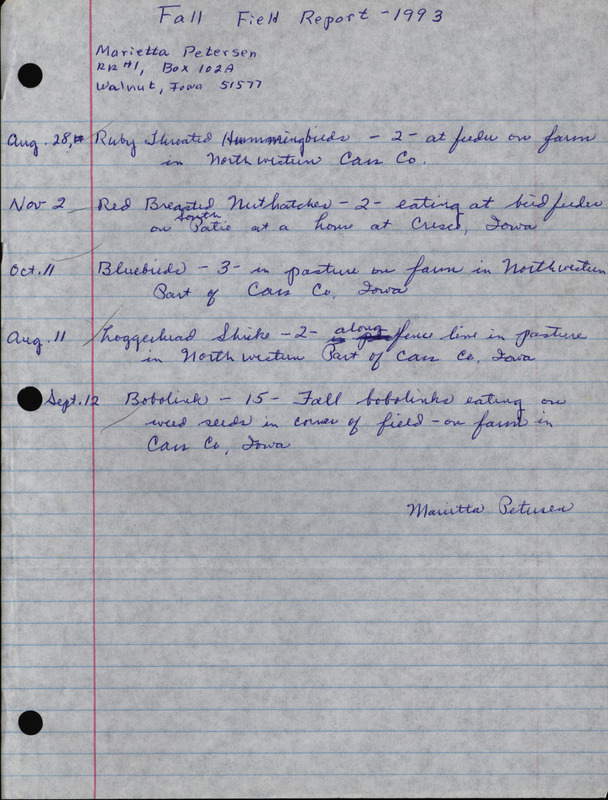 Fall Field Report - 1993
Marietta Petersen
RR #1, Box 102A
Walnut, Iowa 51577
Aug. 28, Ruby Throated Hummingbirds - 2 - at feeder on farm
in Northwestern Cass Co.
Nov 2 Red Breasted Nuthatches - 2 - eating at bird feeder
on South Patio at a home at Cresco, Iowa
Oct. 11 Bluebirds - 3 - in pasture on farm in Northwestern
Part of Cass Co, Iowa
Aug. 11 Loggerhead Shrike - 2 - along fence line in pasture
in Northwestern Part of Cass Co, Iowa
Sept. 12 Bobolink - 15 - Fall bobolinks eating on
weed seeds in corner of field - on farm in
Cass Co, Iowa
Marietta Petersen